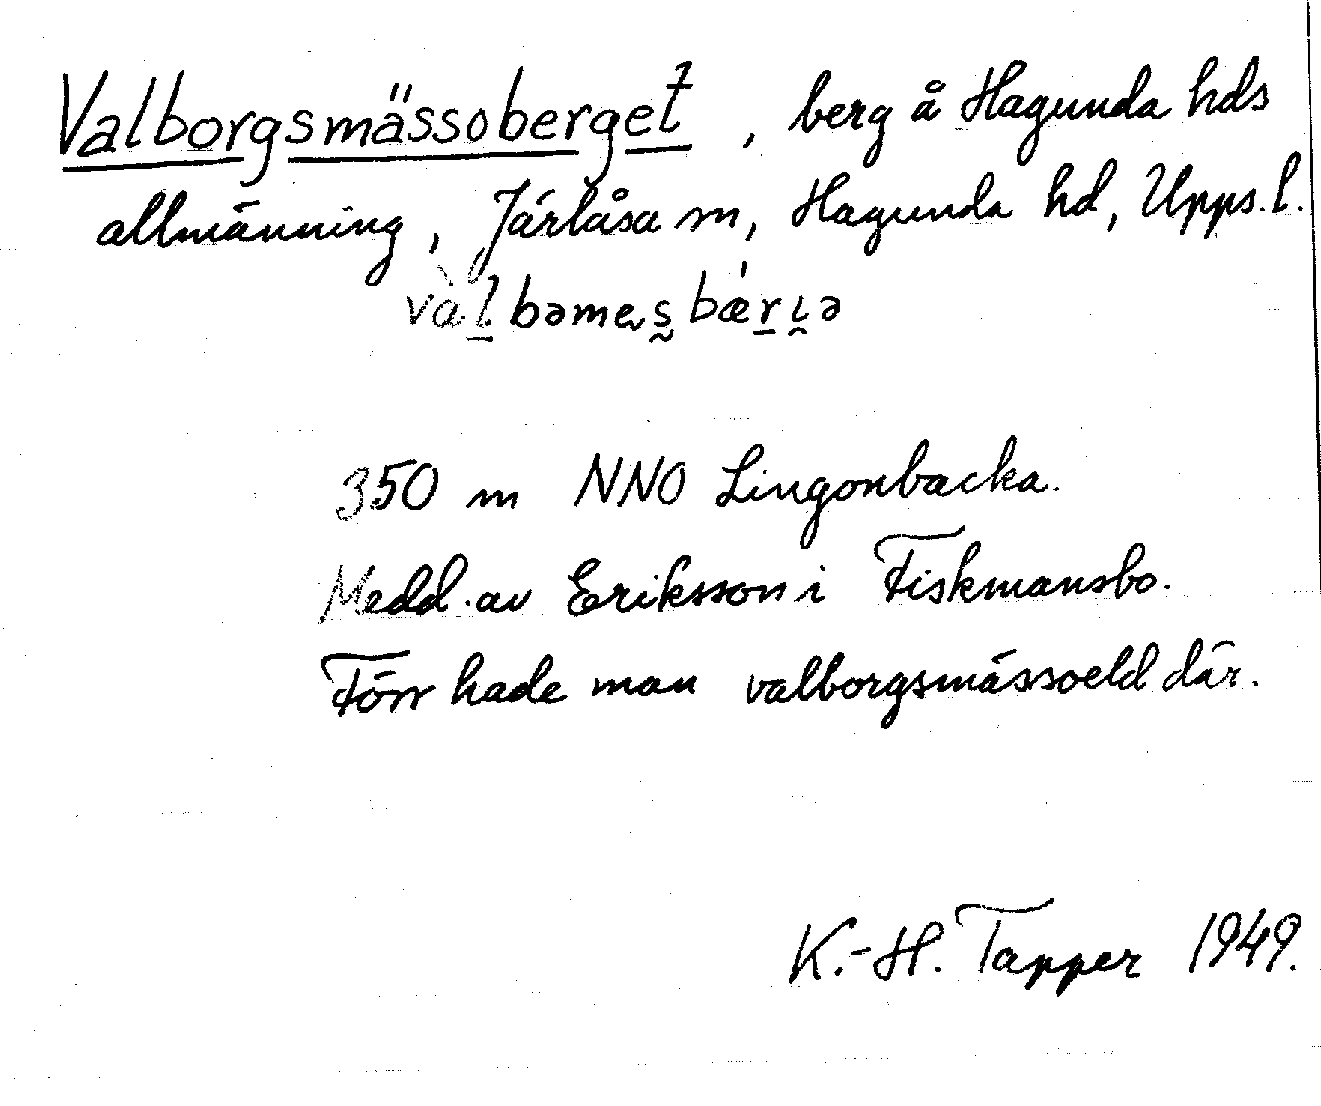 Valborgsmässoberget, berg å Hagunda hds
allmänning, Järlåsa sn, Hagunda hd, Upps. l.
vàl̠bəmesbǽr̠ɩ̯ə
350 m NNO Lingonbacka.
Medd. av Eriksson i Fiskmansbo.
Förr hade man valborgsmässoeld där.
K.-H. Tapper 1949.